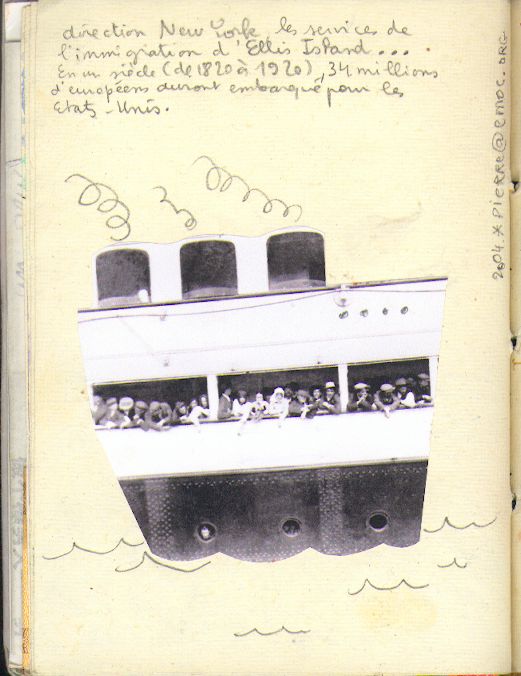 direction New York, les services de
l'immigration d'Ellis Island...
En un siècle (de 1820 à 1920), 34 millions
d'européens auront embarqué pour les
Etats-Unis.
2004 * PIERRE@LMDC.ORG